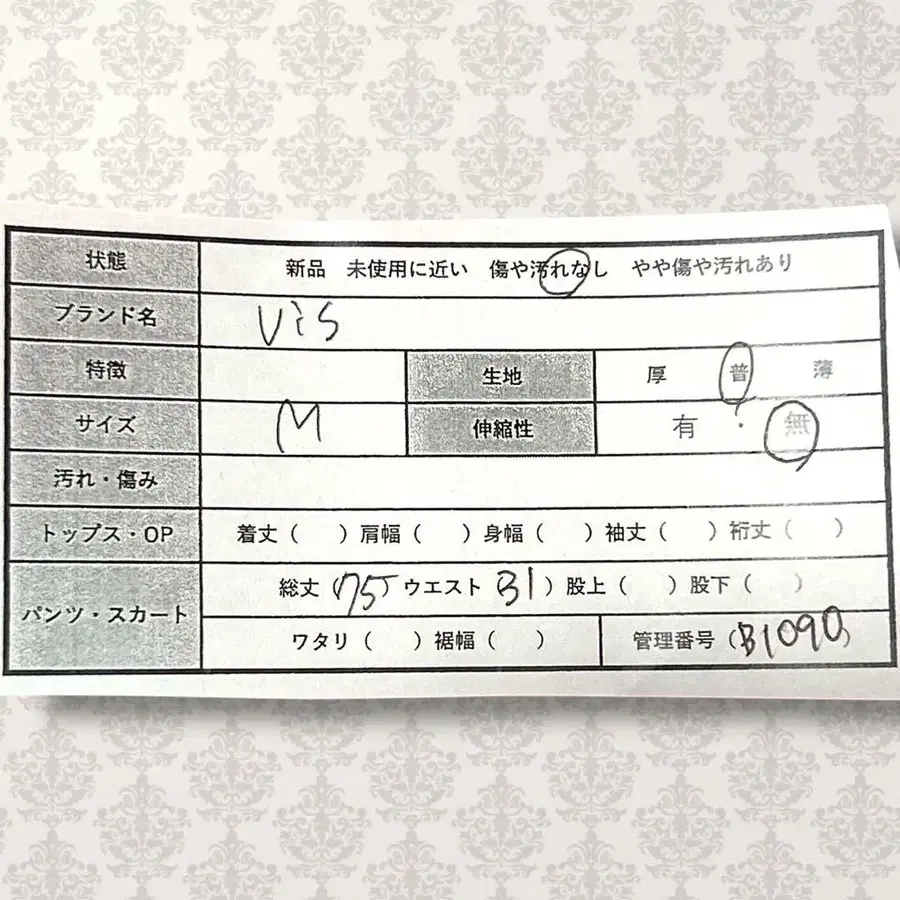 状態 新品 未使用に近い 傷や汚れなし やや傷や汚れあり
ブランド名 ViS
特徴 生地 厚 普 薄
サイズ M 伸縮性 有 ・ 無
汚れ・傷み
トップス・OP 着丈( ) 肩幅( ) 身幅( ) 袖丈( ) 裄丈( )
パンツ・スカート 総丈(75) ウエスト 31) 股上( ) 股下( )
ワタリ( ) 裾幅( ) 管理番号(B1090)